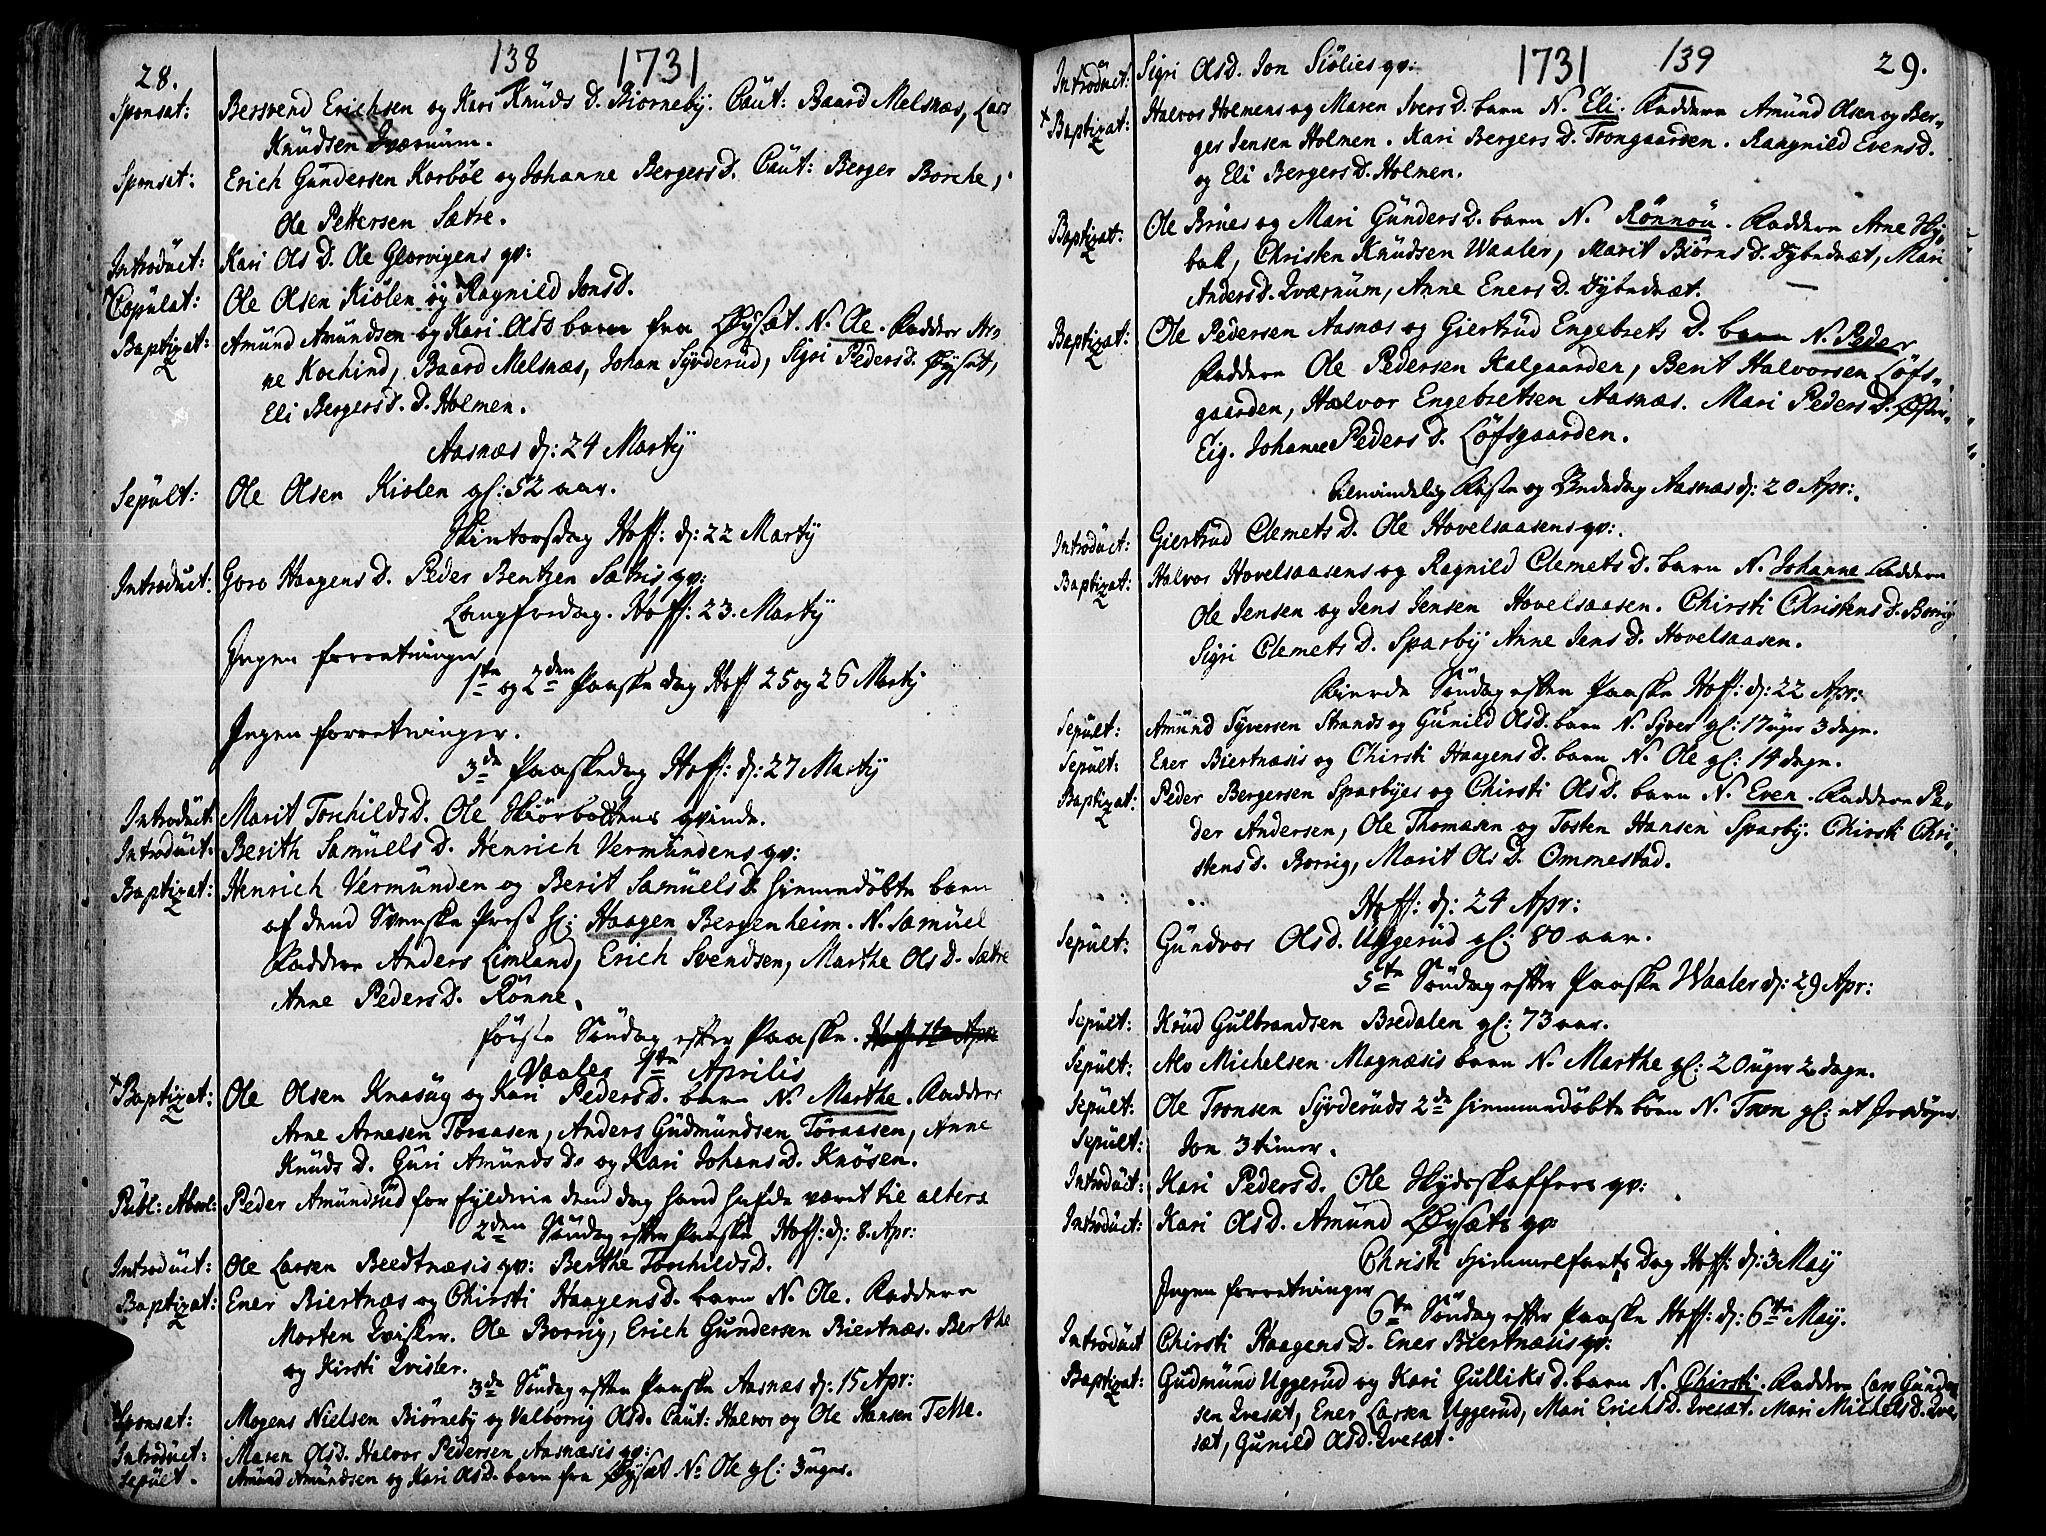 28.
138
1731
Sponsat: Bersvend Erichsen og Kari Knüds D. Biorneby. Caüt: Baard Melsnæs, Lars
Knüdsen Qværnüm.
Sponsat: Erich Gündersen Korböl og Johanne Bergers D. Caüt: Berger Borche,
Ole Pettersen Sætre.
Introdüct: Kari Ols D. Ole Glorvigens qv:
Copülat: Ole Olsen Kiölen og Ragnild Jonsd.
Baptizat: Amünd Amündsen og Kari Olsd barn fra Øÿsæt. N. Ole. Faddere Ar-
ne Kochind, Baard Melsnæs, Johan Sÿvderüd, Sigri Pedersd. Øÿset,
Eli Bergersd. D. Holmen.
Aasnæs d: 24 Martij
Sepült: Ole Olsen Kiolen gl: 52 aar.
Skiertorsdag Hoff: d: 22 Martij
Introdüct: Goro Haagens D. Peder Bentzen Sætris qv:
Langfredag. Hoff: 23. Martij
Ingen forretninger
1ste og 2den Paaske dag Hoff 25 og 26 Martij
Ingen forretninger.
3de Paaskedag Hoff: d: 27 Martij
Introdüct: Marit Torchilds D. Ole Skiörbottens qvinde.
Introdüct: Berith Samüells D. Henrich Vermündens qv:
Baptizat: Henrich Vermünden og Berit Samüels D. hiemmedöbte barn
af dend Svenske Prest H: Haagen Bergenheim. N. Samüel
Faddere Anders Limland, Erich Svendsen, Marthe Ols D. Sætre
Anne Peders D. Rönne.
förste Söndag efter Paaske. Hoff 1te Apr:
Vaaler 1ste Aprilis
Baptizat: Ole Olsen Knasüg og Kari Pedersd. barn N. Marthe. Faddere
Arne Arnesen Toraasen, Anders Güdmündsen Toraasen, Anne
Knüds D. Güri Amünds D. og Kari Johans D. Knösen.
Pübl: Absol: Peder Amündsüd for fylderie dend dag hand hafde været til alters
2den Söndag efter Paaske Hoff: d: 8. Apr:
Introdüct: Ole Larsen Beedtnæsis qv: Berthe Torchilds D.
Baptizat: Ener Biertnæs og Chirsti Haagens D. barn N. Ole. Faddere
Morten Qvisler. Ole Borrig, Erich Gündersen Biertnæs. Berthe
og Kirsti Qvisler.
3de Söndag efter Paaske Aasnæs d: 15 Apr:
Sponsat: Mogens Nielsen Biörneby og Valborrig Olsd. Caüt: Halvor og Ole Hansen Telle.
Introdüct: Maren Olsd. Halvor Pedersen Aasnæsis qv:
Sepült. Amünd Amündsen og Kari Olsd. barn fra Øÿsæt N: Ole gl: 3 üger.
1731
139
29.
Introdüct: Sigri Olsd. Jon Siölies qv:
Baptizat: Halvor Holmens og Maren Ivers D. barn N. Eli. Faddere Amünd Olsen og Ber-
ger Jensen Holmen. Kari Bergers D. Trongaarden. Raagnild Evensd.
og Eli Bergers D. Holmen.
Baptizat: Ole Brües og Mari Günders D. barn N. Rönnoü. Faddere Arne Hy-
bak, Christen Knüdsen Waaler, Marit Biörns D. Dybedræt, Mari
Andersd. Qværnüm, Anne Eners D. Dybedræt.
Baptizat: Ole Pedersen Aasnæs og Giertrüd Engebrets D. barn N. Peder
Faddere Ole Pedersen Kalgaarden, Berit Halvorsen Löfs-
gaarden, Halvor Engebretsen Aasnæs. Mari Peders D. Øster-
Eig. Johanne Peders D. Löfsgaarden.
Almindelig Faste og Bededag Aasnæs d: 20 Apr:
Introdüct: Giertrüd Clemets D. Ole Hovelsaasens qv:
Baptizat: Halvor Hovelsaasens og Ragnild Clemets D. barn N. Johanne Faddere
Ole Jensen og Jens Jensen Hovelsaasen. Chirsti Christens D. Borrig
Sigri Clemets D. Sparbÿ Anne Jens D. Hovelsaasen.
Fierde Söndag efter Paaske Hoff: d: 22 Apr:
Sepült: Amünd Syversen Strands og Günild Olsd. barn N. Syver gl: 17 üger 3 dage.
Sepült: Ener Biertnæsis og Chirsti Haagens D. barn N. Ole gl: 14 dage.
Baptizat: Peder Bergersen Sparbyes og Chirsti Ols D. barn N. Even. Faddere Pe-
der Andersen, Ole Thomæsen og Tosten Hansen Sparbÿ. Chirsti Chri-
stens D. Borrig, Marit Ols D. Ommestad.
Hoff: d: 24 Apr:
Sepült: Gündvor Olsd. Uggerüd gl: 80 aar.
5te Söndag efter Paaske Waaler d: 29 Apr:
Sepült: Knüd Gülbrandsen Bredalen gl: 73 aar.
Sepült: Alv Michelsen Magnæsis barn N. Marthe gl: 20 üger 2 dage.
Sepült: Ole Tronsen Sÿvderüds 2de hiemmedöbte börn N. Tron gl: et
Sepült: Jon 3 timer.
Introdüct: Kari Peders D. Ole Skydsskaffers qv:
Introdüct: Kari Olsd. Amünd Øÿsæts qv:
Christi Himmelfarts Dag Hoff: d: 3 May
Ingen forretninger
6te Söndag efter Paaske Hoff: d: 6te May.
Introdüct Chirsti Haagens D. Ener Biertnæsis qv:
Baptizat: Güdmünd Uggerüd og Kari Gülliks D. barn N. Chirsti. Faddere Lars Günder
sen Qvesæt, Ener Larsen Uggerüd, Mari Erichs D. Qvesæt. Mari Michels D. Qve
sæt, Günild Olsd. Qvesæt.